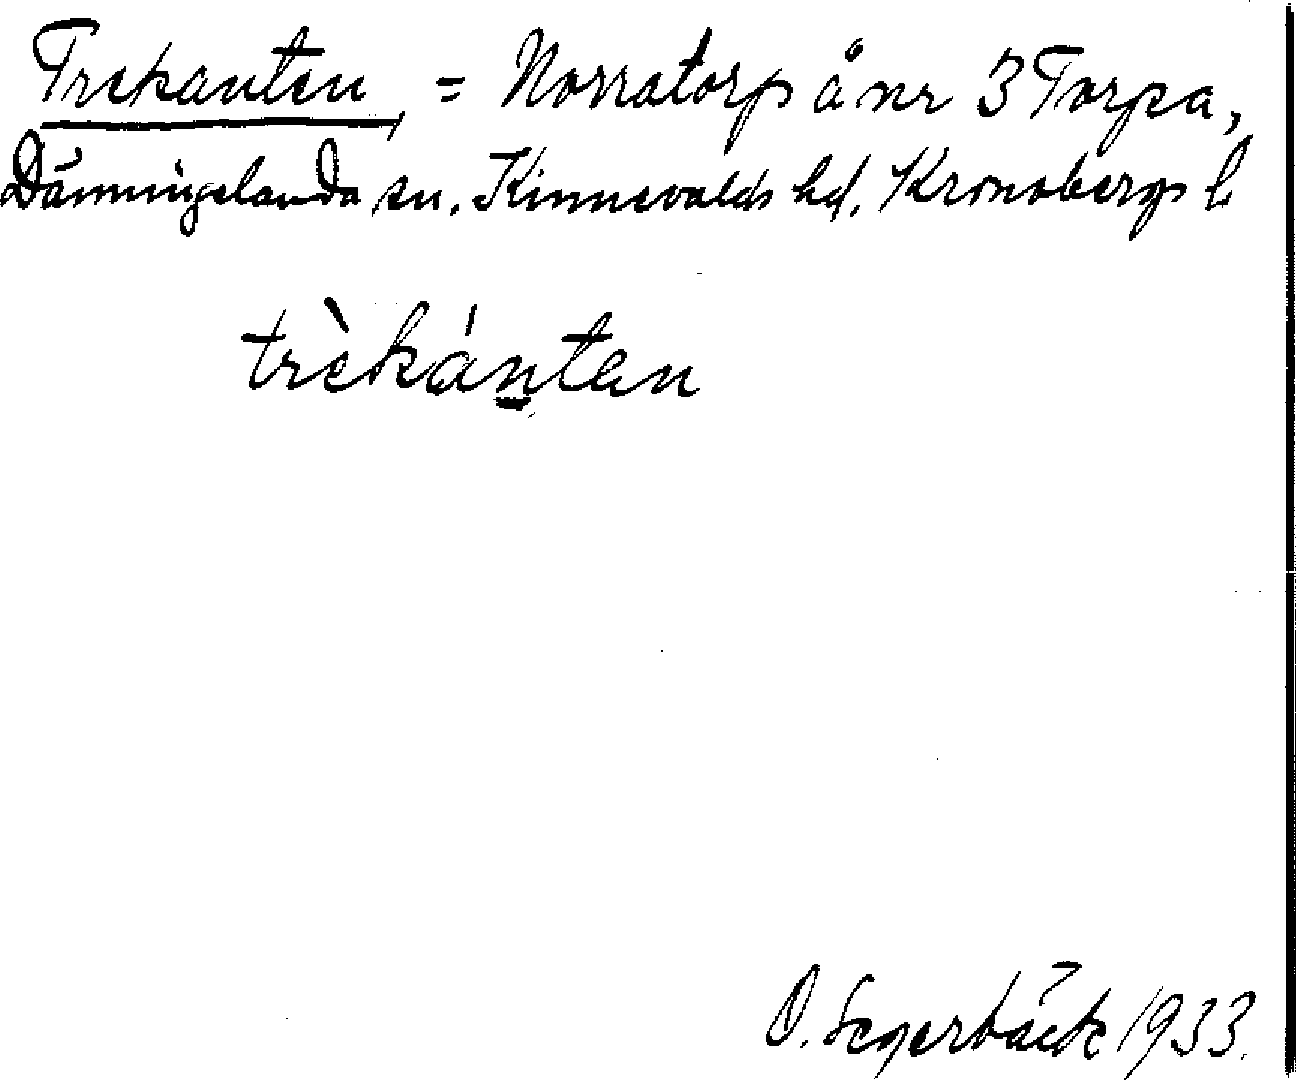 Trekanten, = Norratorp å nr 3 Torpa,
Dänningelanda sn. Kinnevalds hd, Kronobergs l
trèkánten
O. Segerbäck 1933.